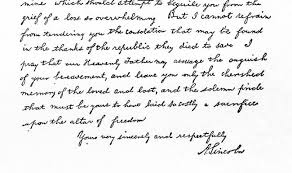 mine which should attempt to beguile you from the
grief of a loss so overwhelming. But I cannot refrain
from tendering you the consolation that may be found
in the thanks of the republic they died to save. I
pray that our Heavenly Father may assuage the anguish
of your bereavement, and leave you only the cherished
memory of the loved and lost, and the solemn pride
that must be yours to have laid so costly a sacrifice
upon the altar of freedom
Yours very sincerely and respectfully
A. Lincoln